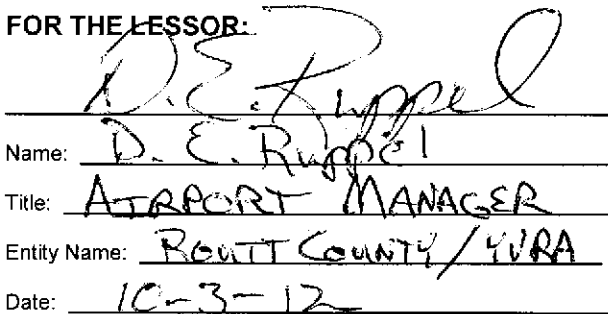 FOR THE LESSOR:
D. E. Ruppel
Name: D. E. Ruppel
Title: AIRPORT MANAGER
Entity Name: ROUTT COUNTY / YVRA
Date: 10-3-12